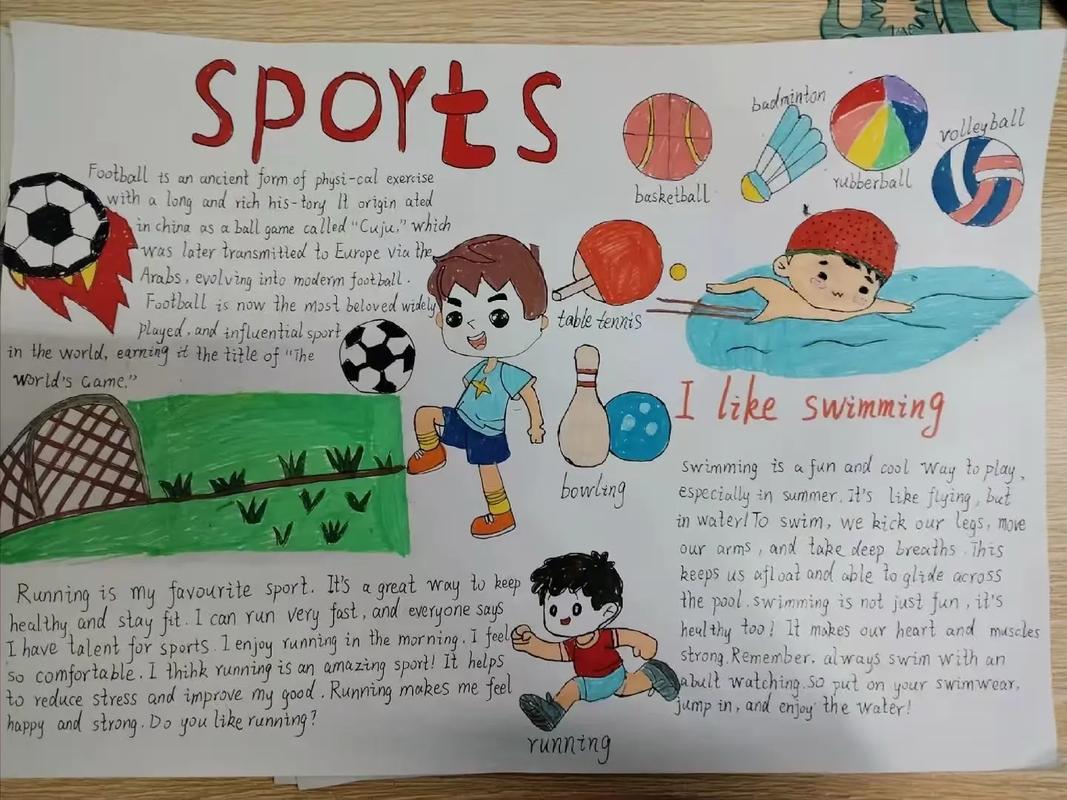 sports
Football is an ancient form of physi-cal exercise
with a long and rich his-tory It origin ated
in china as a ball game called "Cuju," which
was later transmitted to Europe via the
Arabs, evolving into moderm football.
Football is now the most beloved widely
played, and influential sport
in the world, earning it the title of "The
World's Game."
basketball
badminton
rubberball
volleyball
table tennis
bowling
I like swimming
Swimming is a fun and cool way to play,
especially in summer. It's like flying, but
in water! To swim, we kick our legs, move
our arms, and take deep breaths. This
keeps us afloat and able to glide across
the pool. swimming is not just fun, it's
heulthy too! It makes our heart and muscles
strong. Remember. always swim with an
abult watching. So put on your swimwear,
jump in, and enjoy the water!
Running is my favourite sport. It's a great way to keep
healthy and stay fit. I can run very fast, and everyone says
I have talent for sports. I enjoy running in the morning. I feel
so comfortable. I think running is an amazing sport! It helps
to reduce stress and improve my good. Running makes me feel
happy and strong. Do you like running?
running